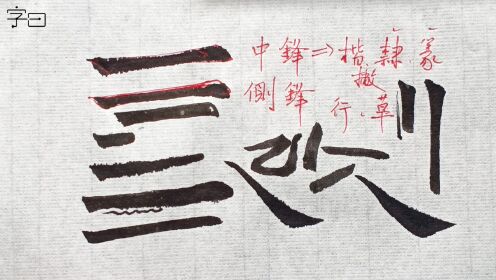 字曰
中鋒⇒楷.隸.篆
撇
側鋒 行.草